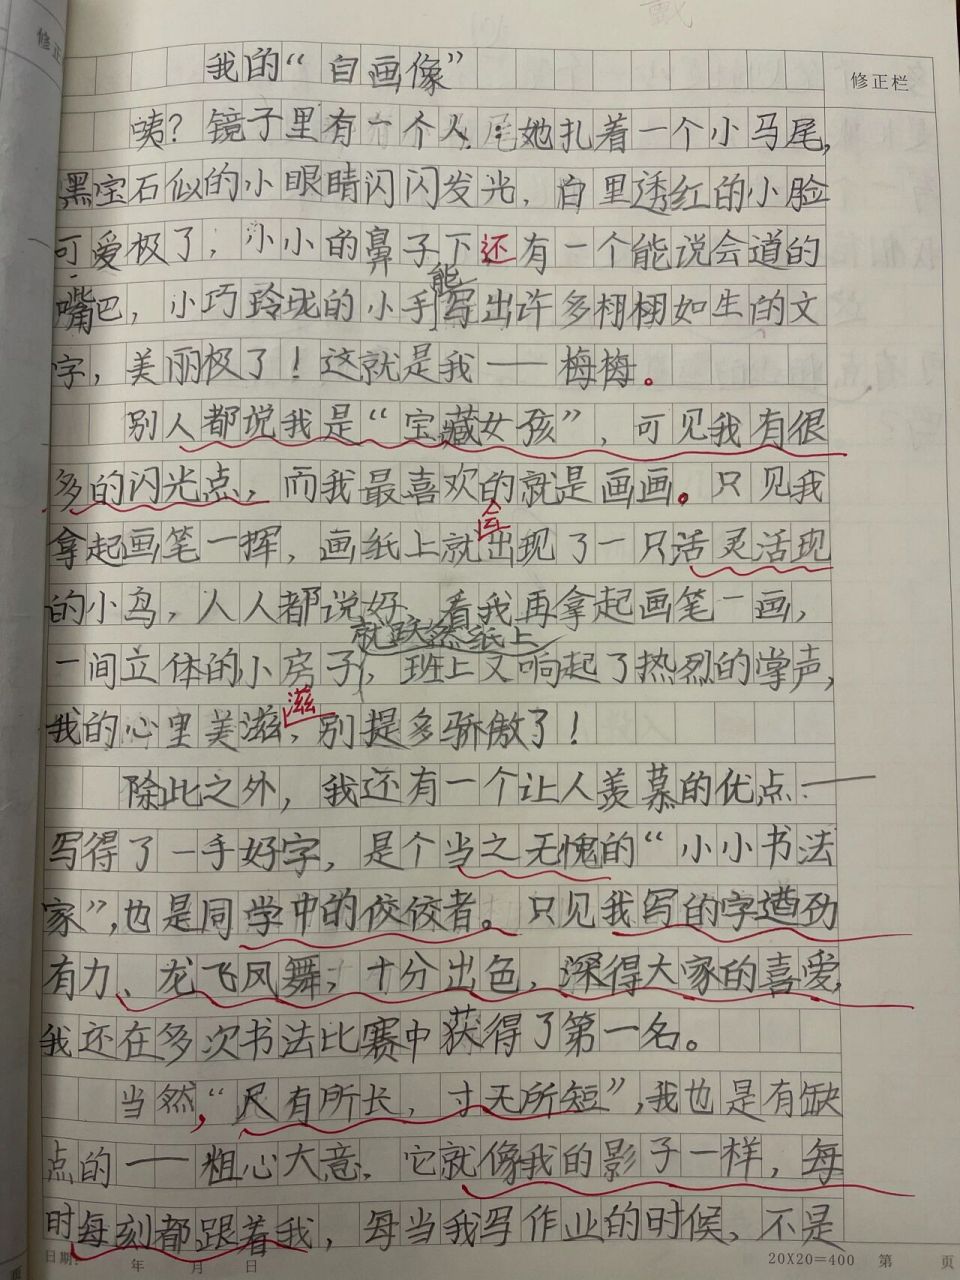 我的“自画像”
修正栏
咦?镜子里有一个人,她扎着一个小马尾,
黑宝石似的小眼睛闪闪发光,白里透红的小脸
可爱极了,小小的鼻子下还有一个能说会道的
嘴巴,小巧玲珑的小手能写出许多栩栩如生的文
字,美丽极了!这就是我——梅梅。
别人都说我是“宝藏女孩”,可见我有很
多的闪光点,而我最喜欢的就是画画。只见我
拿起画笔一挥,画纸上就会出现了一只活灵活现
的小鸟,人人都说好,看我再拿起画笔一画,
一间立体的小房子就跃然纸上,班上又响起了热烈的掌声,
我的心里美滋滋,别提多骄傲了!
除此之外,我还有一个让人羡慕的优点——
写得了一手好字,是个当之无愧的“小小书法
家”,也是同学中的佼佼者。只见我写的字遒劲
有力、龙飞凤舞,十分出色,深得大家的喜爱,
我还在多次书法比赛中获得了第一名。
当然,“尺有所长,寸无所短”,我也是有缺
点的——粗心大意,它就像我的影子一样,每
时每刻都跟着我,每当我写作业的时候,不是
日期: 年 月 日 20X20=400 第 页